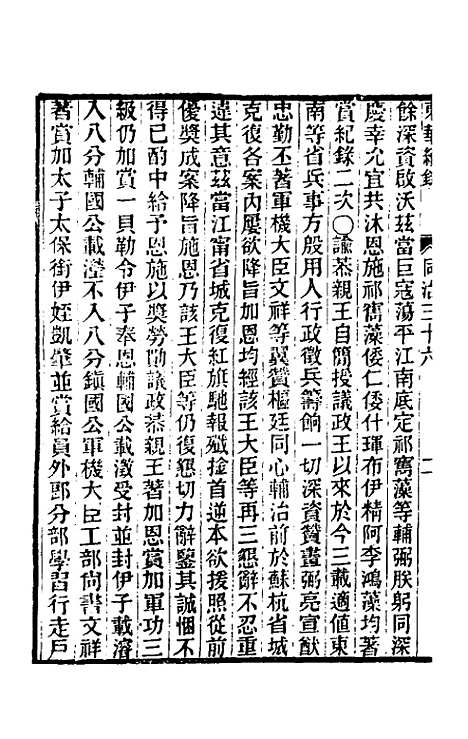 東華續錄 同治三十六 二
餘深資啟沃茲當巨寇蕩平江南底定祁寯藻等輔弼朕躬同深
慶幸允宜共沐恩施祁寯藻倭仁倭什琿布伊精阿李鴻藻均著
賞紀錄二次〇諭恭親王自簡授議政王以來於今三載適値東
南等省兵事方殷用人行政徵兵籌餉一切深資贊畫弼亮宣猷
忠勤丕著軍機大臣文祥等翼贊樞廷同心輔治前於蘇杭省城
克復各案內屢欲降旨加恩均經該王大臣等再三懇辭不忍重
違其意茲當江甯省城克復紅旗馳報殲擒首逆本欲援照從前
優獎成案降旨施恩乃該王大臣等仍復懇切力辭鑒其誠悃不
得已酌中給予恩施以獎勞勩議政恭親王著加恩賞加軍功三
級仍加賞一貝勒令伊子奉恩輔國公載澂受封並封伊子載濬
入八分輔國公載瀅不入八分鎮國公軍機大臣工部尚書文祥
著賞加太子太保銜伊姪凱肇並賞給員外郎分部學習行走戶